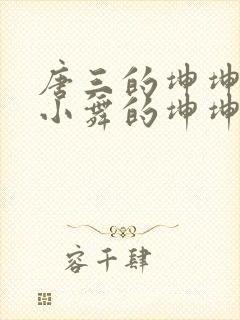 唐三的坤坤
小舞的坤坤
容千肆